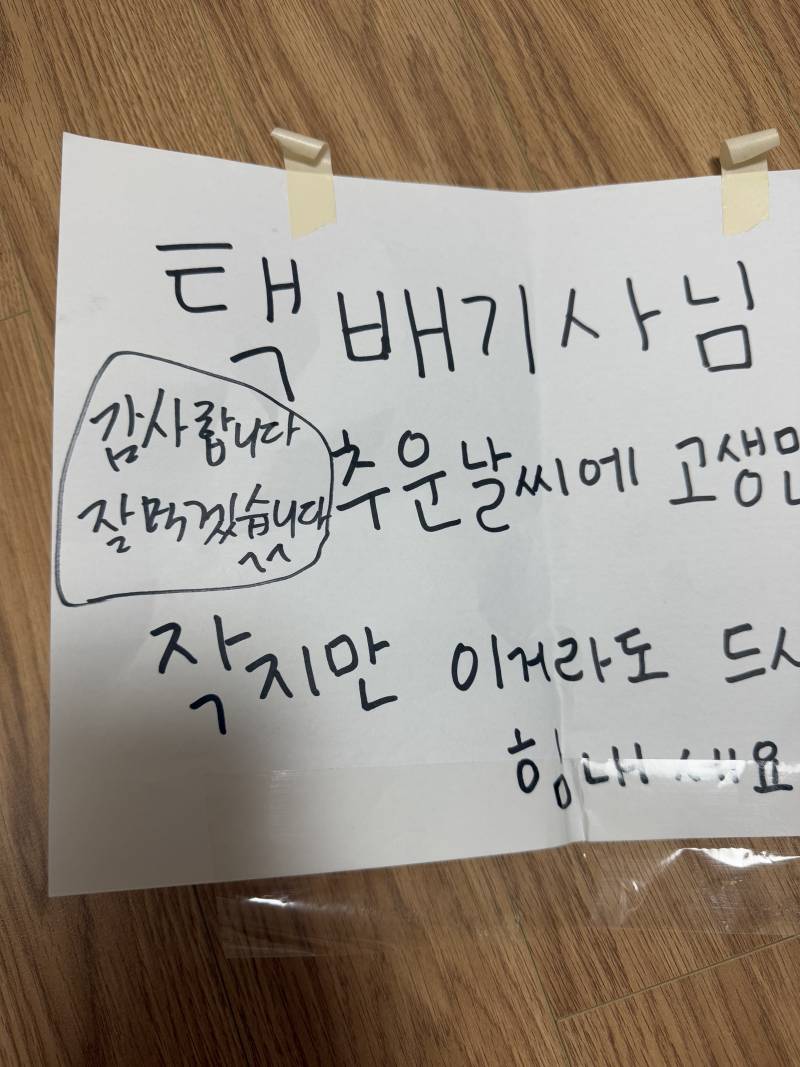 택배기사님
감사합니다
잘먹겠습니다
^^
추운날씨에 고생
작지만 이거라도 드시
힘내세요